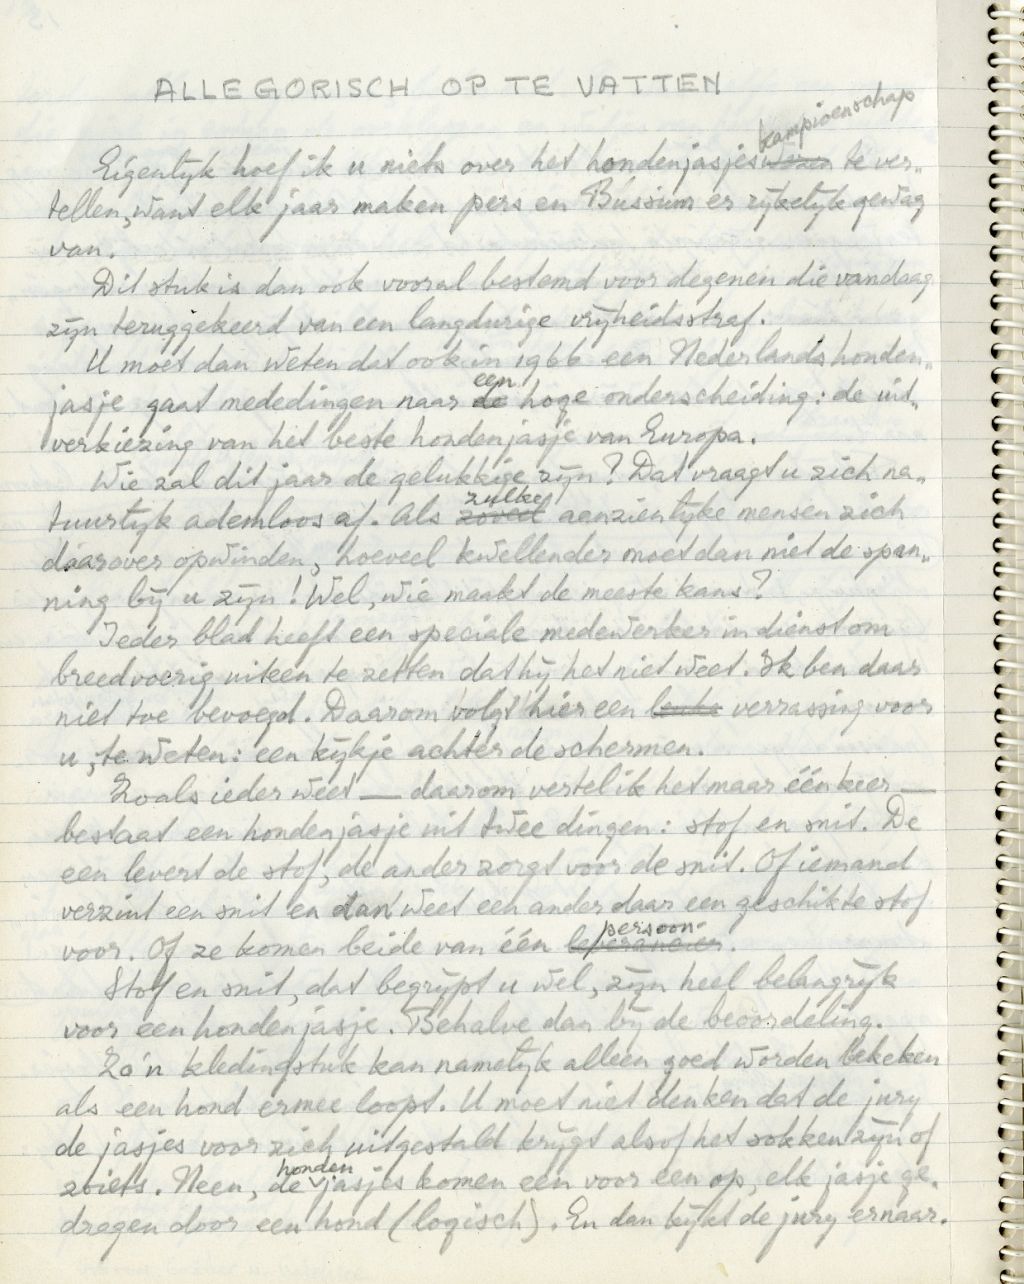 ALLEGORISCH OP TE VATTEN
kampioenschap
Eigenlijk hoef ik u niets over het hondenjasjes te ver-
tellen, want elk jaar maken pers en Bussum er rijkelijk gewag
van.
Dit stuk is dan ook vooral bestemd voor degenen die vandaag
zijn teruggekeerd van een langdurige vrijheidsstraf.
U moet dan weten dat ook in 1966 een Nederlands honden-
een
jasje gaat mededingen naar de hoge onderscheiding: de uit-
verkiezing van het beste hondenjasje van Europa.
Wie zal dit jaar de gelukkige zijn? Dat vraagt u zich na-
zulke
tuurlijk ademloos af. Als zoveel aanzienlijke mensen zich
daarover opwinden, hoeveel kwellender moet dan niet de span-
ning bij u zijn! Wel, wie maakt de meeste kans?
Ieder blad heeft een speciale medewerker in dienst om
breedvoerig uiteen te zetten dat hij het niet weet. Ik ben daar
niet toe bevoegd. Daarom volgt hier een leuke verrassing voor
u, te weten: een kijkje achter de schermen.
Zoals ieder weet — daarom vertel ik het maar één keer —
bestaat een hondenjasje uit twee dingen: stof en snit. De
een levert de stof, de ander zorgt voor de snit. Of iemand
verzint een snit en dan weet een ander daar een geschikte stof
persoon
voor. Of ze komen beide van één leverancier.
Stof en snit, dat begrijpt u wel, zijn heel belangrijk
voor een hondenjasje. Behalve dan bij de beoordeling.
Zo'n kledingstuk kan namelijk alleen goed worden bekeken
als een hond ermee loopt. U moet niet denken dat de jury
de jasjes voor zich uitgestald krijgt alsof het sokken zijn of
honden
zoiets. Neen, de jasjes komen een voor een op, elk jasje ge-
dragen door een hond (logisch). En dan kijkt de jury ernaar.